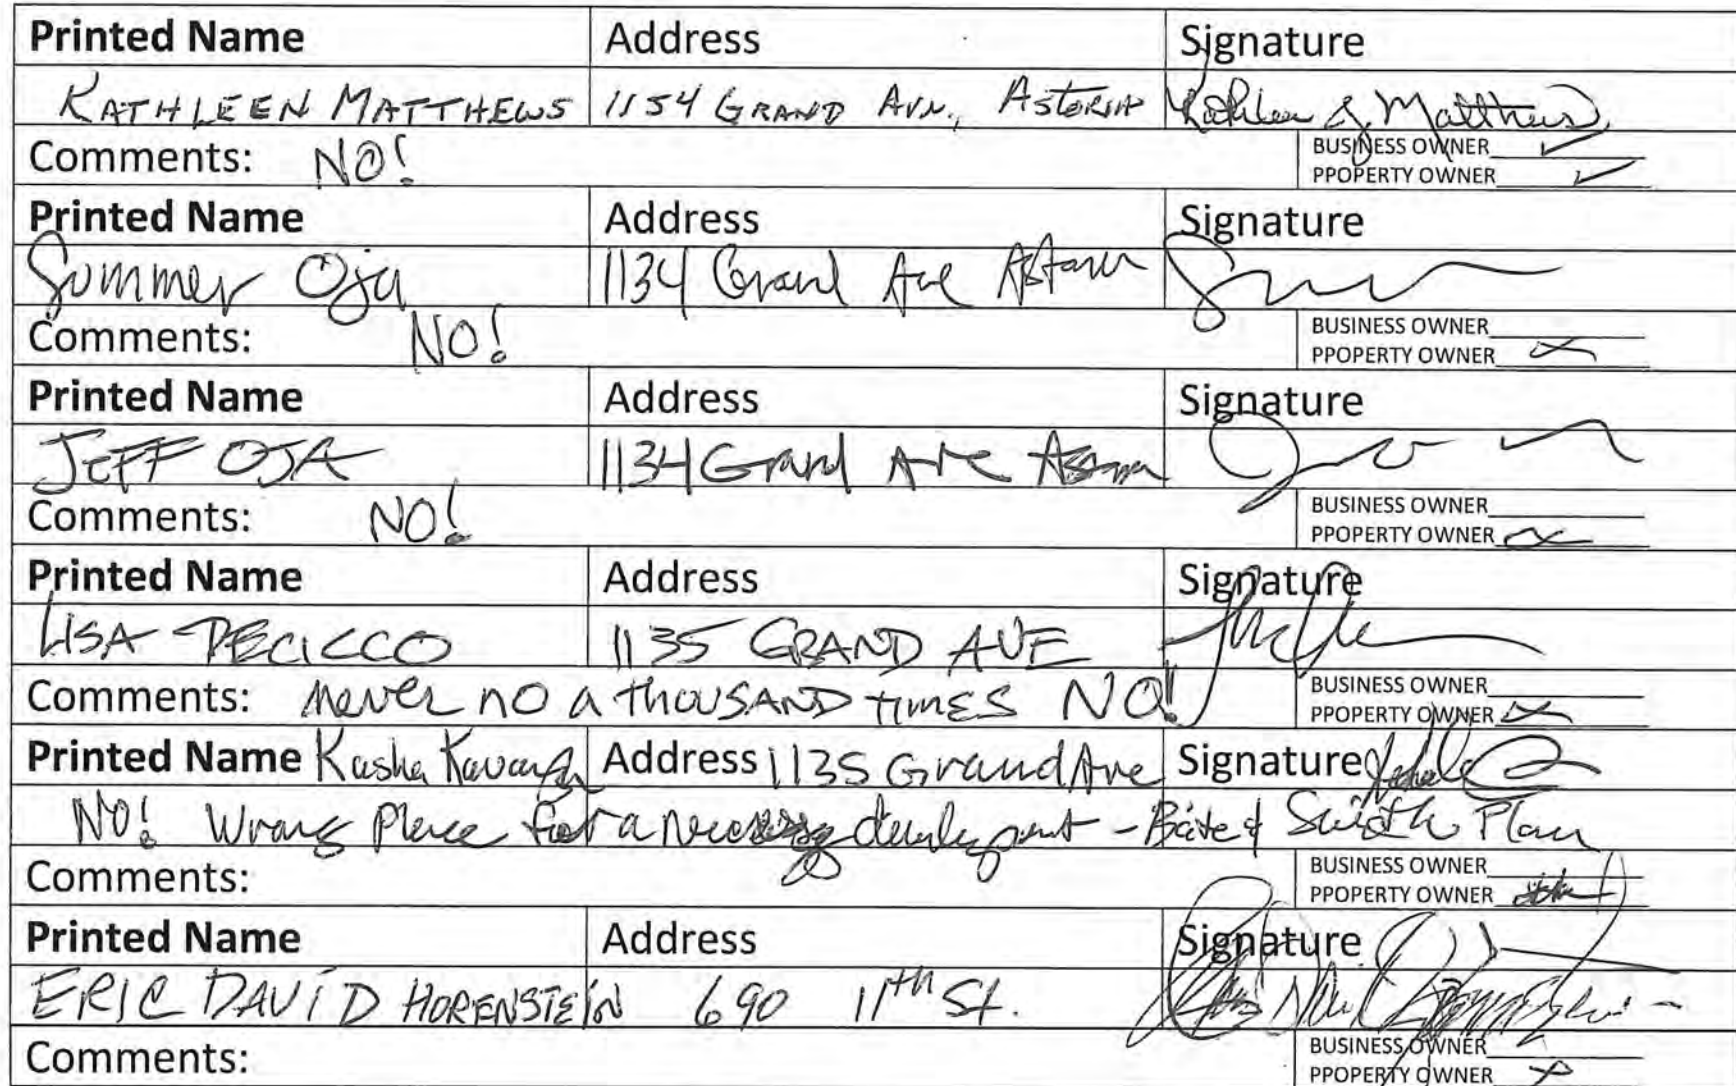 Printed Name Address Signature
KATHLEEN MATTHEWS 1154 GRAND AVN., ASTORIA Kathleen J. Matthews
Comments: NO! BUSINESS OWNER ✓
PPOPERTY OWNER ✓
Printed Name Address Signature
Sommer Oja 1134 Grand Ave Astoria
Comments: NO! BUSINESS OWNER
PPOPERTY OWNER X
Printed Name Address Signature
JEFF OJA 1134 Grand Ave Astoria
Comments: NO! BUSINESS OWNER
PPOPERTY OWNER X
Printed Name Address Signature
LISA DECICCO 1135 GRAND AVE
Comments: never no a thousand times NO! BUSINESS OWNER
PPOPERTY OWNER X
Printed Name Kasha Address 1135 Grand Ave Signature
NO! Wrong Place for a necessary development - Plan
BUSINESS OWNER
Comments: PPOPERTY OWNER
Printed Name Address Signature
ERIC DAVID HORENSTEIN 690 11th St.
Comments: BUSINESS OWNER
PPOPERTY OWNER X